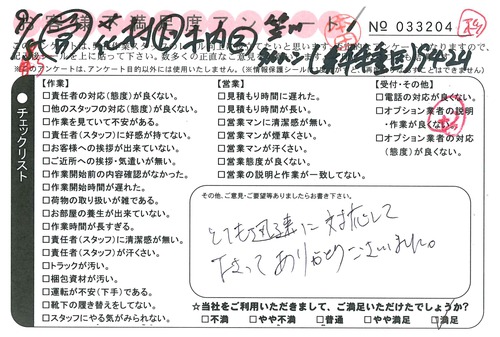 お客様満足度アンケート
No 033204
チェックリスト
【作業】
□責任者の対応(態度)が良くない。
□他のスタッフの対応(態度)が良くない。
□作業を見ていて不安がある。
□責任者(スタッフ)に好感が持てない。
□お客様への挨拶が出来ていない。
□ご近所への挨拶・気遣いが無い。
□作業開始前の内容確認がなかった。
□作業開始時間が遅れた。
□荷物の取り扱いが雑である。
□お部屋の養生が出来ていない。
□作業時間が長すぎる。
□責任者(スタッフ)に清潔感が無い。
□責任者(スタッフ)が汗くさい。
□トラックが汚い。
□梱包資材が汚い。
□運転が不安(下手)である。
□靴下の履き替えをしてない。
□スタッフにやる気がみられない。
【営業】
□見積もり時間に遅れた。
□見積もり時間が長い。
□営業マンに清潔感が無い。
□営業マンが煙草くさい。
□営業マンが汗くさい。
□営業態度が良くない。
□営業の説明と作業が一致してない。
【受付・その他】
□電話の対応が良くない。
□オプション業者の説明
・作業が良くない。
□オプション業者の対応
(態度)が良くない。
その他、ご意見・ご要望等ありましたらお書き下さい。
とても迅速に対応して
下さってありがとうございました。
☆当社をご利用いただきまして、ご満足いただけたでしょうか?
□不満 □やや不満 □普通 □やや満足 □満足